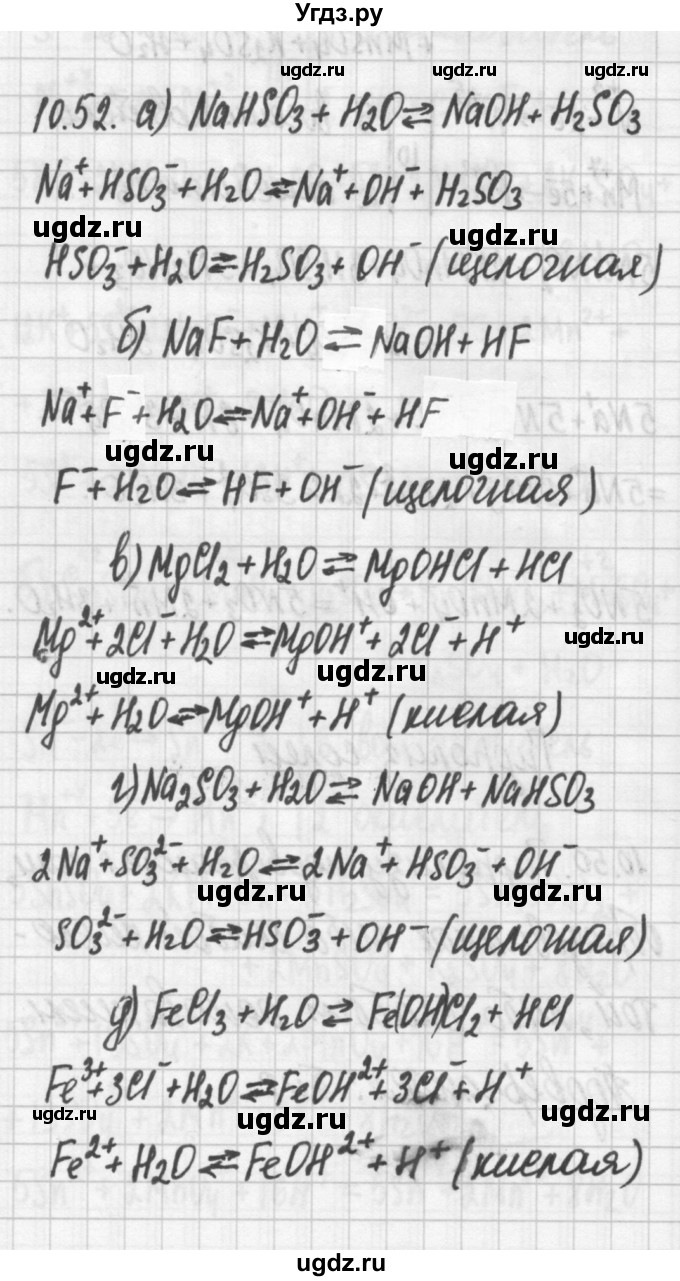 Угдз.ру
ugdz.ru ugdz.ru ugdz.ru
10.52. а) NaHSO₃ + H₂O ⇌ NaOH + H₂SO₃
Na⁺ + HSO₃⁻ + H₂O ⇌ Na⁺ + OH⁻ + H₂SO₃
ugdz.ru ugdz.ru
HSO₃⁻ + H₂O ⇌ H₂SO₃ + OH⁻ (щелочная)
б) NaF + H₂O ⇌ NaOH + HF
Na⁺ + F⁻ + H₂O ⇌ Na⁺ + OH⁻ + HF
ugdz.ru ugdz.ru
F⁻ + H₂O ⇌ HF + OH⁻ (щелочная)
в) MgCl₂ + H₂O ⇌ MgOHCl + HCl
ugdz.ru ugdz.ru
Mg²⁺ + 2Cl⁻ + H₂O ⇌ MgOH⁺ + 2Cl⁻ + H⁺
ugdz.ru ugdz.ru
Mg²⁺ + H₂O ⇌ MgOH⁺ + H⁺ (кислая)
г) Na₂SO₃ + H₂O ⇌ NaOH + NaHSO₃
ugdz.ru ugdz.ru
2Na⁺ + SO₃²⁻ + H₂O ⇌ 2Na⁺ + HSO₃⁻ + OH⁻
ugdz.ru ugdz.ru
SO₃²⁻ + H₂O ⇌ HSO₃⁻ + OH⁻ (щелочная)
д) FeCl₃ + H₂O ⇌ Fe(OH)Cl₂ + HCl
ugdz.ru ugdz.ru
Fe³⁺ + 3Cl⁻ + H₂O ⇌ FeOH²⁺ + 3Cl⁻ + H⁺
ugdz.ru ugdz.ru ugdz.ru
Fe²⁺ + H₂O ⇌ FeOH²⁺ + H⁺ (кислая)
ugdz.ru